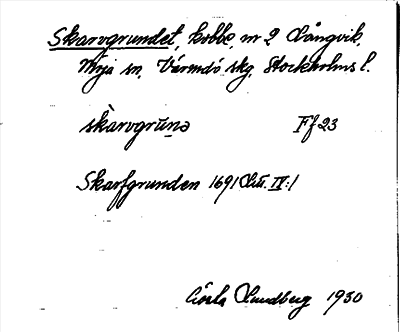 Skarvgrundet, kobbe, nr 2 Långvik,
Möja sn, Värmdö skg, Stockholms l.
skàrvgrūnə Ff 23
Skarfgrunden 1691 Litt. IV:1
Gösta Lundberg 1930